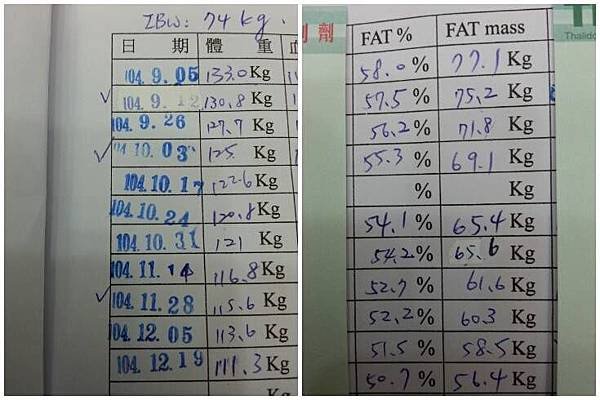 IBW: 74 kg.
日 期 體 重
104. 9. 05 133.0 Kg
104. 9. 12 130.8 Kg
104. 9. 26 127.7 Kg
104. 10. 03 125. Kg
104. 10. 17 122.6 Kg
104. 10. 24 120.8 Kg
104. 10. 31 121 Kg
104. 11. 14 116.8 Kg
104. 11. 28 115.6 Kg
104. 12. 05 113.6 Kg
104. 12. 19 111.3 Kg
Kg
劑
Thalido
FAT % FAT mass
58.0 % 77.1 Kg
57.5 % 75.2 Kg
56.2 % 71.8 Kg
55.3 % 69.1 Kg
% Kg
54.1 % 65.4 Kg
54.2 % 65.6 Kg
52.7 % 61.6 Kg
52.2 % 60.3 Kg
51.5 % 58.5 Kg
50.7 % 56.4 Kg